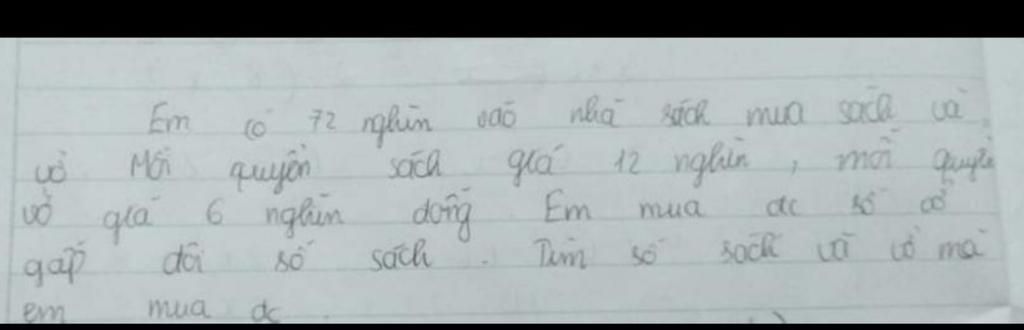 Em có 72 nghìn vào nhà sách mua sách và
vở Mỗi quyển sách giá 12 nghìn, mỗi quyển
vở giá 6 nghìn đồng Em mua đc số vở
gấp đôi số sách. Tìm số sách và vở mà
em mua đc.